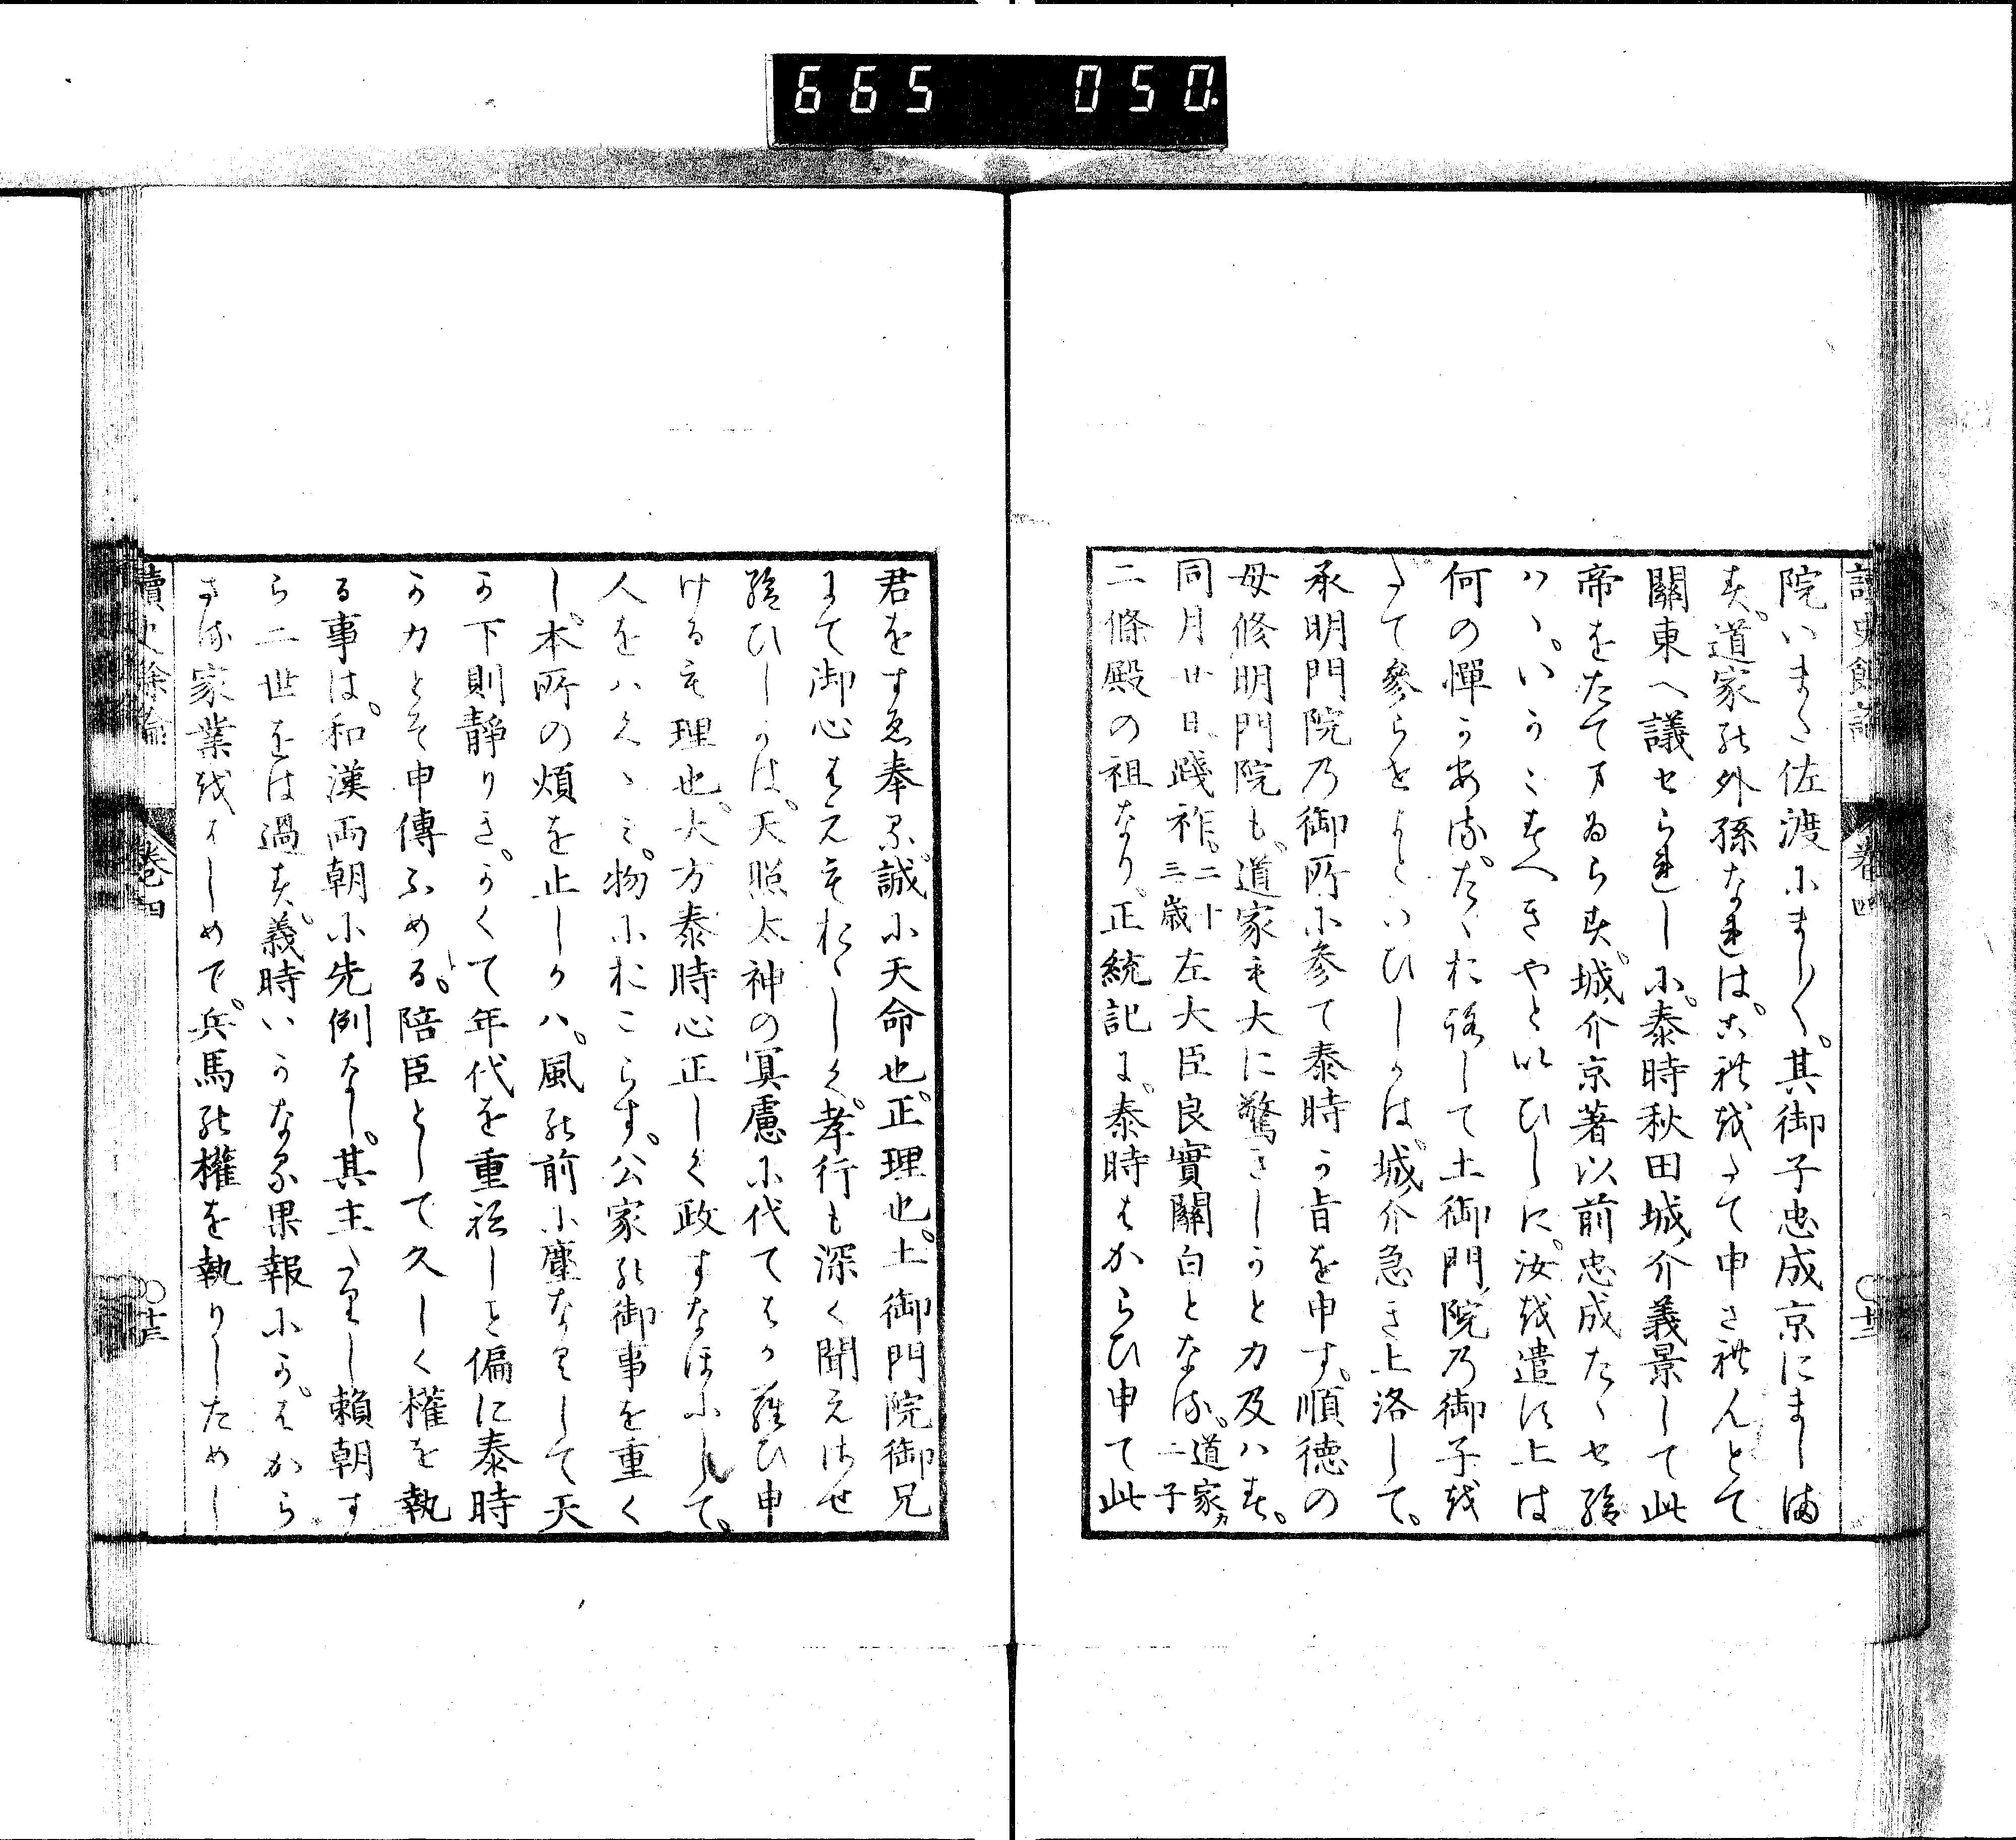 665 050
讀史餘論 卷四 ○十二
院いまた佐渡にまし〱。其御子忠成京にましま
す。道家の外孫なれは。これをたて申されんとて
關東へ議せられしに。泰時秋田城介義景して此
帝をたてまゐらす。城介京著以前忠成たゝせ給
はゝ。いかゝすへきやといひしに。汝を遣す上は
何の憚かある。たゝおろして土御門院の御子を
たて參らせよといひしかは。城介急き上洛して。
承明門院の御所に參て泰時か旨を申す。順徳の
母修明門院も。道家も大に驚きしかと力及はす。
同月廿日踐祚。二十三歳左大臣良實關白となる。道家カ二子
二條殿の祖なり。正統記に。泰時はからひ申て此
君をすゑ奉る。誠に天命也。正理也。土御門院御兄
にて御心はえもおゝしく。孝行も深く聞えさせ
給ひしかは。天照太神の冥慮に代てはからひ申
けるも理也。大方泰時心正しく政すなほにして。
人をはくゝみ。物におこらす。公家の御事を重く
し。本所の煩を止しかハ。風の前に塵なくして天
か下則靜りき。かくて年代を重ねしこと偏に泰時
か力とそ申傳ふめる。陪臣として久しく權を執
る事は。和漢兩朝に先例なし。其主たりし頼朝す
ら二世をは過す。義時いかなる果報にか。はから
さる家業をはしめて。兵馬の權を執りしためし
讀史餘論 卷四 ○十三